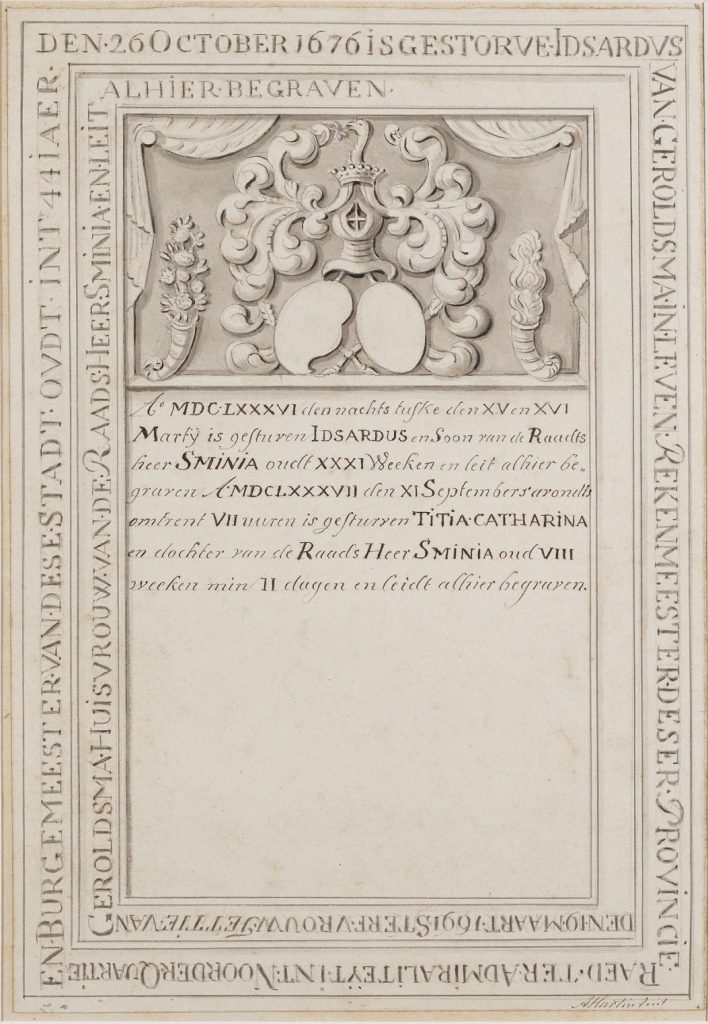 DEN·26 OCTOBER 1676 IS GESTORVE·IDSARDVS
VAN·GEROLDSMA·IN·LEVEN·REKENMEESTER·DESER·PROVINCIE·
RAED·TER·ADMIRALITEŸT·INT·NOORDER·QUARTIE·
EN·BURGEMEESTER·VAN·DESE·STADT·OVDT·INT·44 IAER·
DEN 19 MAART·1691 STERF·VROUW·JETTIE·VAN
GEROLDSMA·HUISVROUW·VAN·DE·RAADS·HEER SMINIA·EN·LEIT
ALHIER·BEGRAVEN·
Aº MDC·LXXXVI den nachts tuske den XV en XVI
Martÿ is gesturven IDSARDUS en Soon van de Raadts
heer SMINIA oudt XXXI Weeken en leit alhier be„
graven Aº MDCLXXXVII den XI Septembers avondts
omtrent VII uuren is gesturven TITIA·CATHARINA
en dochter van de Raads Heer SMINIA oud VIII
weeken min II dagen en leidt alhier begraven.